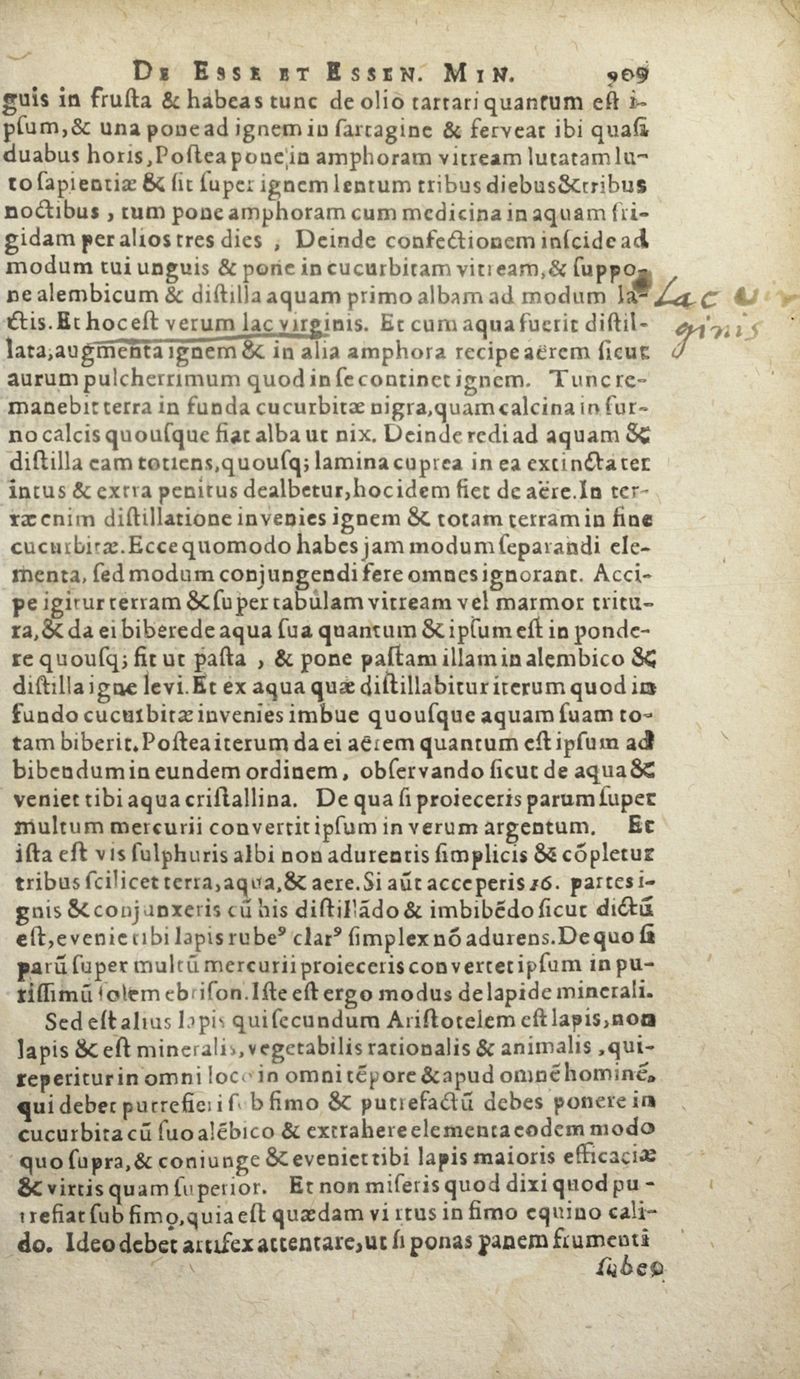 De Esse et Essen. Min. 909
guis in frusta & habeas tunc de olio tartari quantum est i-
psum, & una pone ad ignem in sartagine & ferveat ibi quasi
duabus horis, Postea pone, in amphoram vitream lutatam lu-
to sapientiæ & sit super ignem lentum tribus diebus & tribus
noctibus, tum pone amphoram cum medicina in aquam fri-
gidam per alios tres dies, Deinde confectionem inscide ad
modum tui unguis & pone in cucurbitam vitream, & suppo-
ne alembicum & distilla aquam primo albam ad modum la-
ctis. Et hoc est verum lac virginis. Et cum aqua fuerit distil-
lata, augmenta ignem & in alia amphora recipe aërem sicut
aurum pulcherrimum quod in se continet ignem. Tunc re-
manebit terra in funda cucurbitæ nigra, quam calcina in fur-
no calcis quousque fiat alba ut nix. Deinde redi ad aquam &
distilla eam totiens, quousq; lamina cuprea in ea extincta ter
intus & extra penitus dealbetur, hoc idem fiet de aëre. In ter-
ræ enim distillatione invenies ignem & totam terram in fine
cucurbitæ. Ecce quomodo habes jam modum separandi ele-
menta, sed modum conjungendi fere omnes ignorant. Acci-
pe igitur terram & super tabulam vitream vel marmor tritu-
ra, & da ei bibere de aqua sua quantum & ipsum est in ponde-
re quousq; fit ut pasta, & pone pastam illam in alembico &
distilla igne levi. Et ex aqua quæ distillabitur iterum quod in
fundo cucurbitæ invenies imbue quousque aquam suam to-
tam biberit. Postea iterum da ei aërem quantum est ipsum ad
bibendum in eundem ordinem, observando sicut de aqua &
veniet tibi aqua cristallina. De qua si proieceris parum super
multum mercurii convertit ipsum in verum argentum. Et
ista est vis sulphuris albi non adurentis simplicis & cōpletur
tribus scilicet terra, aqua, & aere. Si aūt acceperis 16. partes i-
gnis & conjunxeris cū his distillādo & imbibēdo sicut dictū
est, eveniet tibi lapis rubeꝰ clarꝰ simplex nō adurens. De quo si
parū super multū mercurii proieceris convertet ipsum in pu-
rissimū solem ebrison. Iste est ergo modus de lapide minerali.
Sed est alius lapis qui secundum Aristotelem est lapis, non
lapis & est mineralis, vegetabilis rationalis & animalis, qui-
reperitur in omni loco in omni tēpore & apud omnē hominē,
qui debet putrefieri sub fimo & putrefactū debes ponere in
cucurbita cū suo alēbico & extrahere elementa eodem modo
quo supra, & coniunge & eveniet tibi lapis maioris efficaciæ
& virtis quam superior. Et non miseris quod dixi quod pu-
trefiat sub fimo, quia est quædam virtus in fimo equino cali-
do. Ideo debet artifex attentare, ut si ponas panem frumenti
sub eo
Lac
ginis